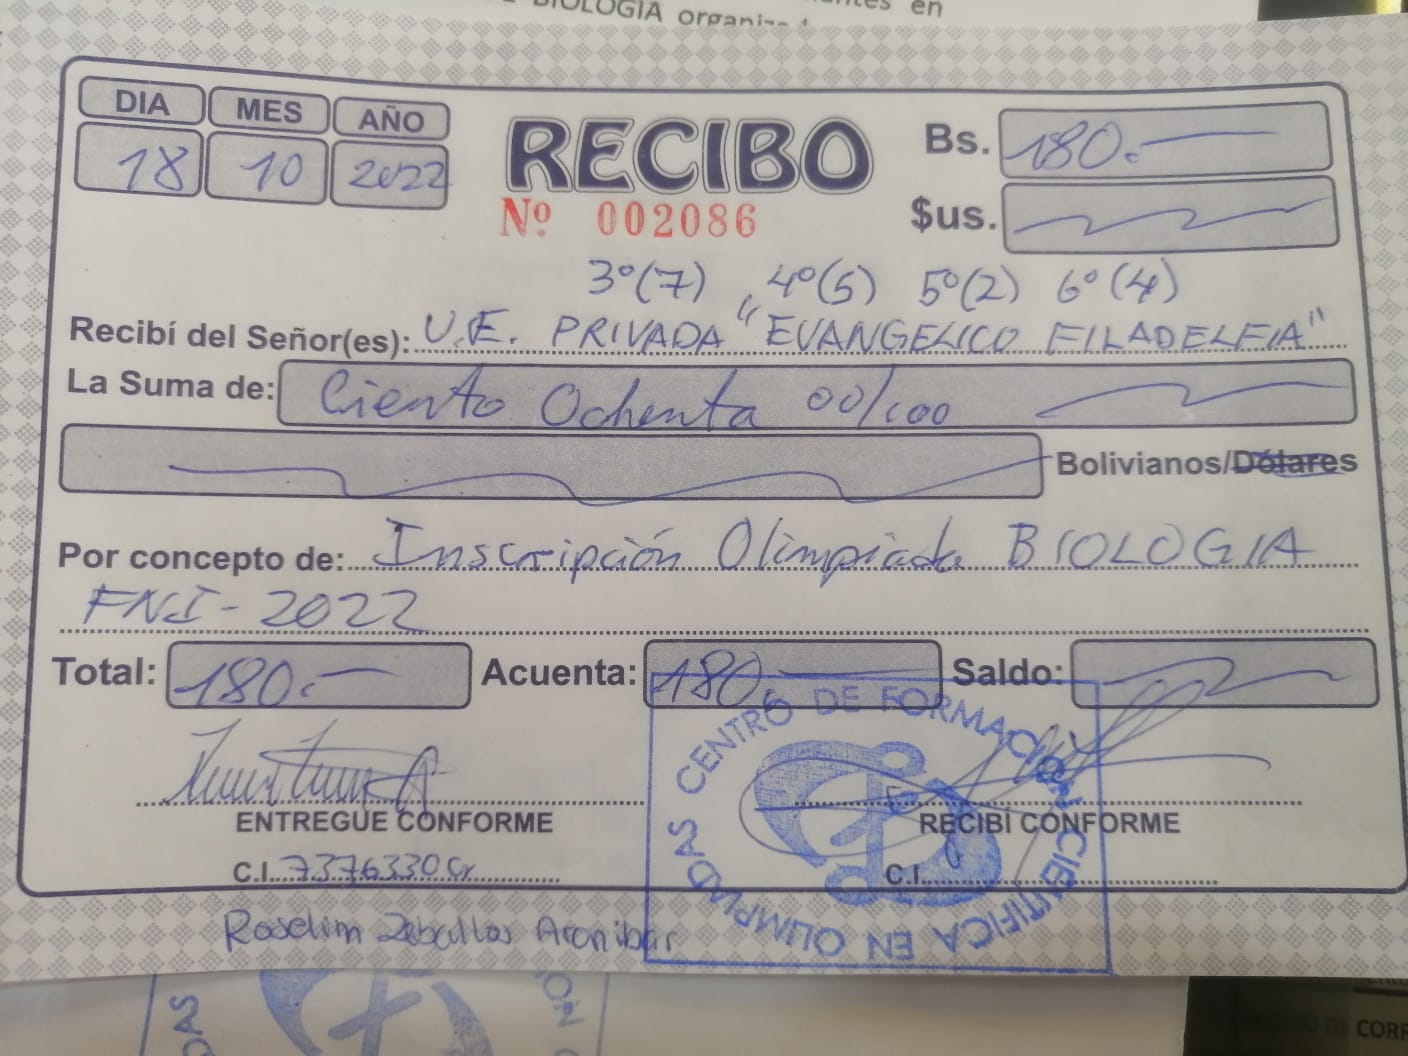 BIOLOGIA
en
DIA MES AÑO
18 10 2022
RECIBO
Nº 002086
Bs. 180.-
$us.
3º(7) 4º(5) 5º(2) 6º(4)
Recibí del Señor(es): U.E. PRIVADA "EVANGELICO FILADELFIA"
La Suma de: Ciento Ochenta 00/100
Bolivianos/Dólares
Por concepto de: Inscripción Olimpiada BIOLOGIA
FNI-2022
Total: 180.- Acuenta: 180.- Saldo:
ENTREGUE CONFORME
C.I. 7376330 Or
RECIBÍ CONFORME
C.I.
CENTRO DE FORMACION CIENTIFICA Y EN OLIMPIADAS
Roselim Zeballos Aranibar